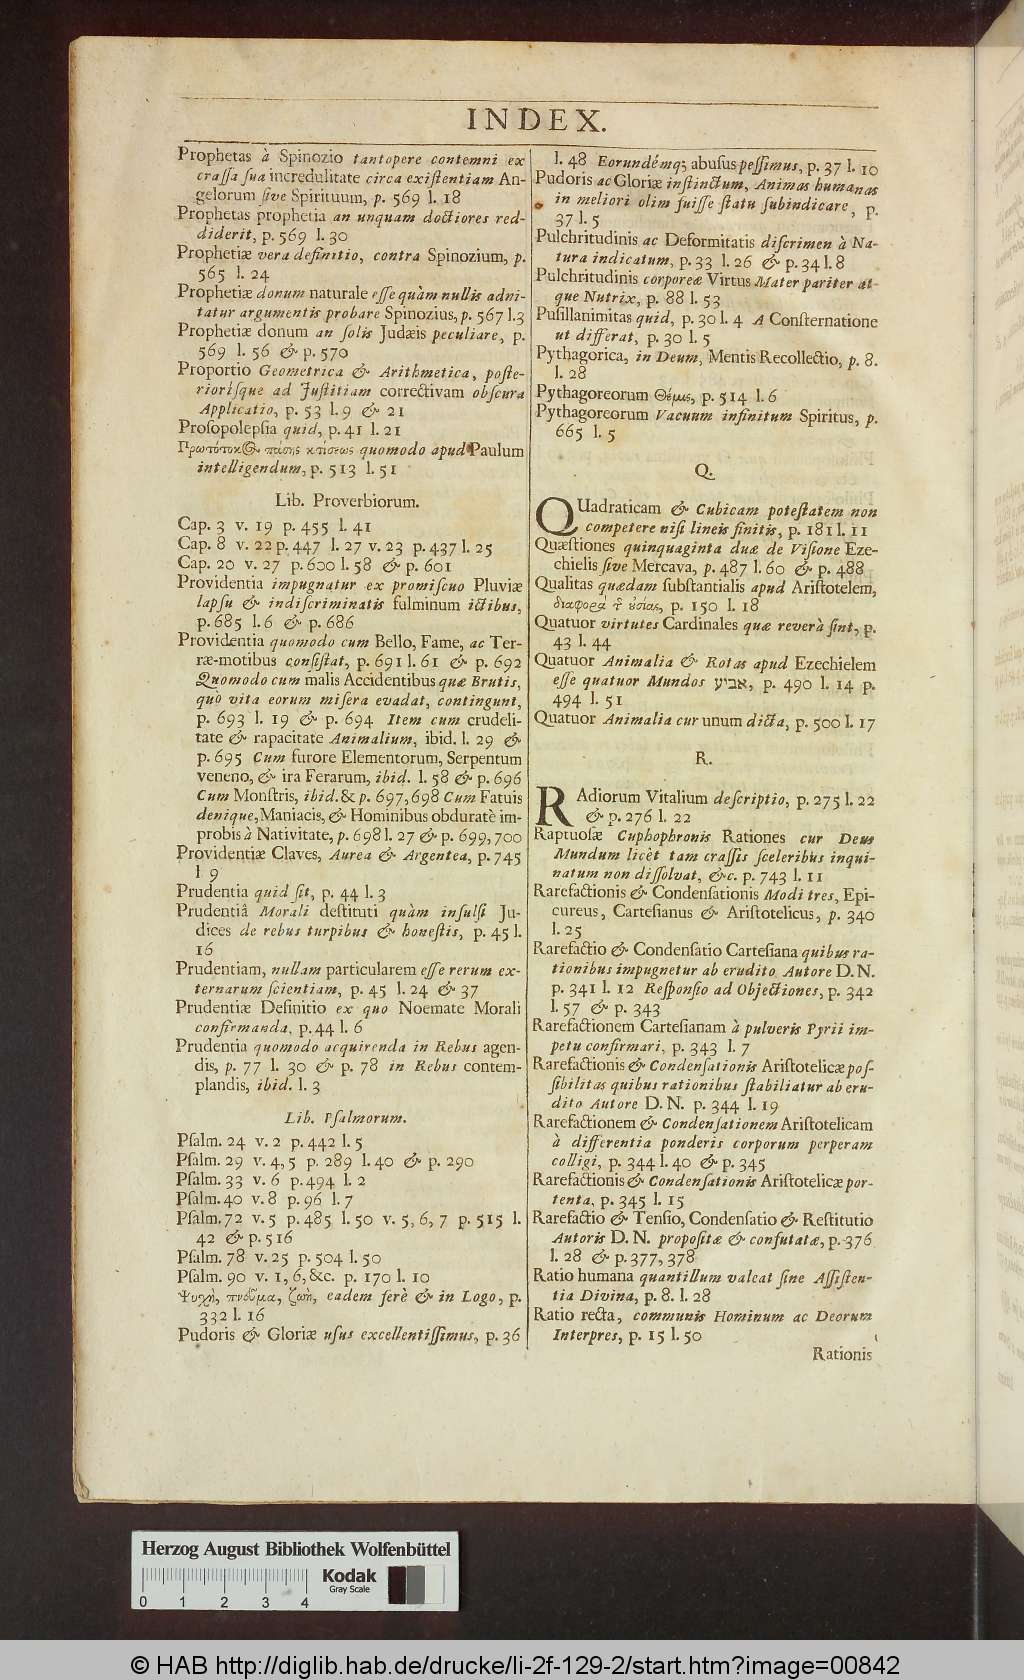 INDEX.
Prophetas à Spinozio tantopere contemni ex
crassa sua incredulitate circa existentiam An-
gelorum sive Spirituum, p. 569 l. 18
Prophetas prophetia an unquam doctiores red-
diderit, p. 569 l. 30
Prophetiæ vera definitio, contra Spinozium, p.
565 l. 24
Prophetiæ donum naturale esse quàm nullis adni-
tatur argumentis probare Spinozius, p. 567 l. 3
Prophetiæ donum an solis Judæis peculiare, p.
569 l. 56 & p. 570
Proportio Geometrica & Arithmetica, poste-
riorísque ad Justitiam correctivam obscura
Applicatio, p. 53 l. 9 & 21
Prosopolepsia quid, p. 41 l. 21
Πρωτότοκ πάσης κτίσεως quomodo apud Paulum
intelligendum, p. 513 l. 51
Lib. Proverbiorum.
Cap. 3 v. 19 p. 455 l. 41
Cap. 8 v. 22 p. 447 l. 27 v. 23 p. 437 l. 25
Cap. 20 v. 27 p. 600 l. 58 & p. 601
Providentia impugnatur ex promiscuo Pluviæ
lapsu & indiscriminatis fulminum ictibus,
p. 685 l. 6 & p. 686
Providentia quomodo cum Bello, Fame, ac Ter-
ræ-motibus consistat, p. 691 l. 61 & p. 692
Quomodo cum malis Accidentibus quæ Brutis,
quò vita eorum misera evadat, contingunt,
p. 693 l. 19 & p. 694 Item cum crudeli-
tate & rapacitate Animalium, ibid. l. 29 &
p. 695 Cum furore Elementorum, Serpentum
veneno, & ira Ferarum, ibid. l. 58 & p. 696
Cum Monstris, ibid. & p. 697, 698 Cum Fatuis
denique, Maniacis, & Hominibus obduratè im-
probis à Nativitate, p. 698 l. 27 & p. 699, 700
Providentiæ Claves, Aurea & Argentea, p. 745
l 9
Prudentia quid sit, p. 44 l. 3
Prudentiâ Morali destituti quàm insulsi Ju-
dices de rebus turpibus & honestis, p. 45 l.
16
Prudentiam, nullam particularem esse rerum ex-
ternarum scientiam, p. 45 l. 24 & 37
Prudentiæ Definitio ex quo Noemate Morali
confirmanda, p. 44 l. 6
Prudentia quomodo acquirenda in Rebus agen-
dis, p. 77 l. 30 & p. 78 in Rebus contem-
plandis, ibid. l. 3
Lib. Psalmorum.
Psalm. 24 v. 2 p. 442 l. 5
Psalm. 29 v. 4, 5 p. 289 l. 40 & p. 290
Psalm. 33 v. 6 p. 494 l. 2
Psalm. 40 v. 8 p. 96 l. 7
Psalm. 72 v. 5 p. 485 l. 50 v. 5, 6, 7 p. 515 l.
42 & p. 516
Psalm. 78 v. 25 p. 504 l. 50
Psalm. 90 v. 1, 6, &c. p. 170 l. 10
Ψυχὴ, πνεῦμα, ζωὴ, eadem ferè & in Logo, p.
332 l. 16
Pudoris & Gloriæ usus excellentissimus, p. 36
l. 48 Eorundémq; abusus pessimus, p. 37 l. 10
Pudoris ac Gloriæ instinctum, Animas humanas
in meliori olim fuisse statu subindicare, p.
37 l. 5
Pulchritudinis ac Deformitatis discrimen à Na-
tura indicatum, p. 33 l. 26 & p. 34 l. 8
Pulchritudinis corporeæ Virtus Mater pariter at-
que Nutrix, p. 88 l. 53
Pusillanimitas quid, p. 30 l. 4 A Consternatione
ut differat, p. 30 l. 5
Pythagorica, in Deum, Mentis Recollectio, p. 8.
l. 28
Pythagoreorum Θέμις, p. 514 l. 6
Pythagoreorum Vacuum infinitum Spiritus, p.
665 l. 5
Q.
QUadraticam & Cubicam potestatem non
competere nisi lineis finitis, p. 181 l. 11
Quæstiones quinquaginta duæ de Visione Eze-
chielis sive Mercava, p. 487 l. 60 & p. 488
Qualitas quædam substantialis apud Aristotelem,
διαφορὰ τ ὐσίας, p. 150 l. 18
Quatuor virtutes Cardinales quæ reverà sint, p.
43 l. 44
Quatuor Animalia & Rotas apud Ezechielem
esse quatuor Mundos אביע, p. 490 l. 14 p.
494 l. 51
Quatuor Animalia cur unum dicta, p. 500 l. 17
R.
RAdiorum Vitalium descriptio, p. 275 l. 22
& p. 276 l. 22
Raptuosæ Cuphophronis Rationes cur Deus
Mundum licèt tam crassis sceleribus inqui-
natum non dissolvat, &c. p. 743 l. 11
Rarefactionis & Condensationis Modi tres, Epi-
cureus, Cartesianus & Aristotelicus, p. 340
l. 25
Rarefactio & Condensatio Cartesiana quibus ra-
tionibus impugnetur ab erudito Autore D. N.
p. 341 l. 12 Responsio ad Objectiones, p. 342
l. 57 & p. 343
Rarefactionem Cartesianam à pulveris Pyrii im-
petu confirmari, p. 343 l. 7
Rarefactionis & Condensationis Aristotelicæ pos-
sibilitas quibus rationibus stabiliatur ab eru-
dito Autore D. N. p. 344 l. 19
Rarefactionem & Condensationem Aristotelicam
à differentia ponderis corporum perperam
colligi, p. 344 l. 40 & p. 345
Rarefactionis & Condensationis Aristotelicæ por-
tenta, p. 345 l. 15
Rarefactio & Tensio, Condensatio & Restitutio
Autoris D. N. propositæ & confutatæ, p. 376
l. 28 & p. 377, 378
Ratio humana quantillum valeat sine Assisten-
tia Divina, p. 8. l. 28
Ratio recta, communis Hominum ac Deorum
Interpres, p. 15 l. 50
Rationis
Herzog August Bibliothek Wolfenbüttel
Kodak
Gray Scale
0 1 2 3 4
© HAB http://diglib.hab.de/drucke/li-2f-129-2/start.htm?image=00842